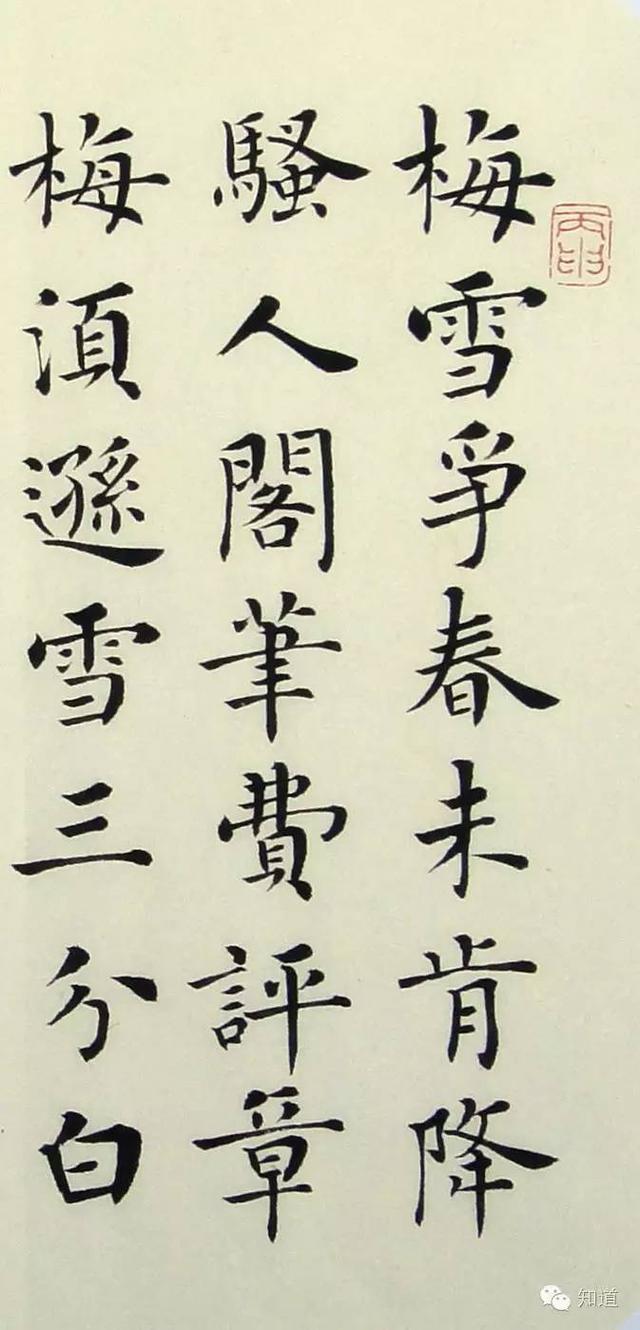 丙申
梅雪爭春未肯降
騷人閣筆費評章
梅須遜雪三分白
知道